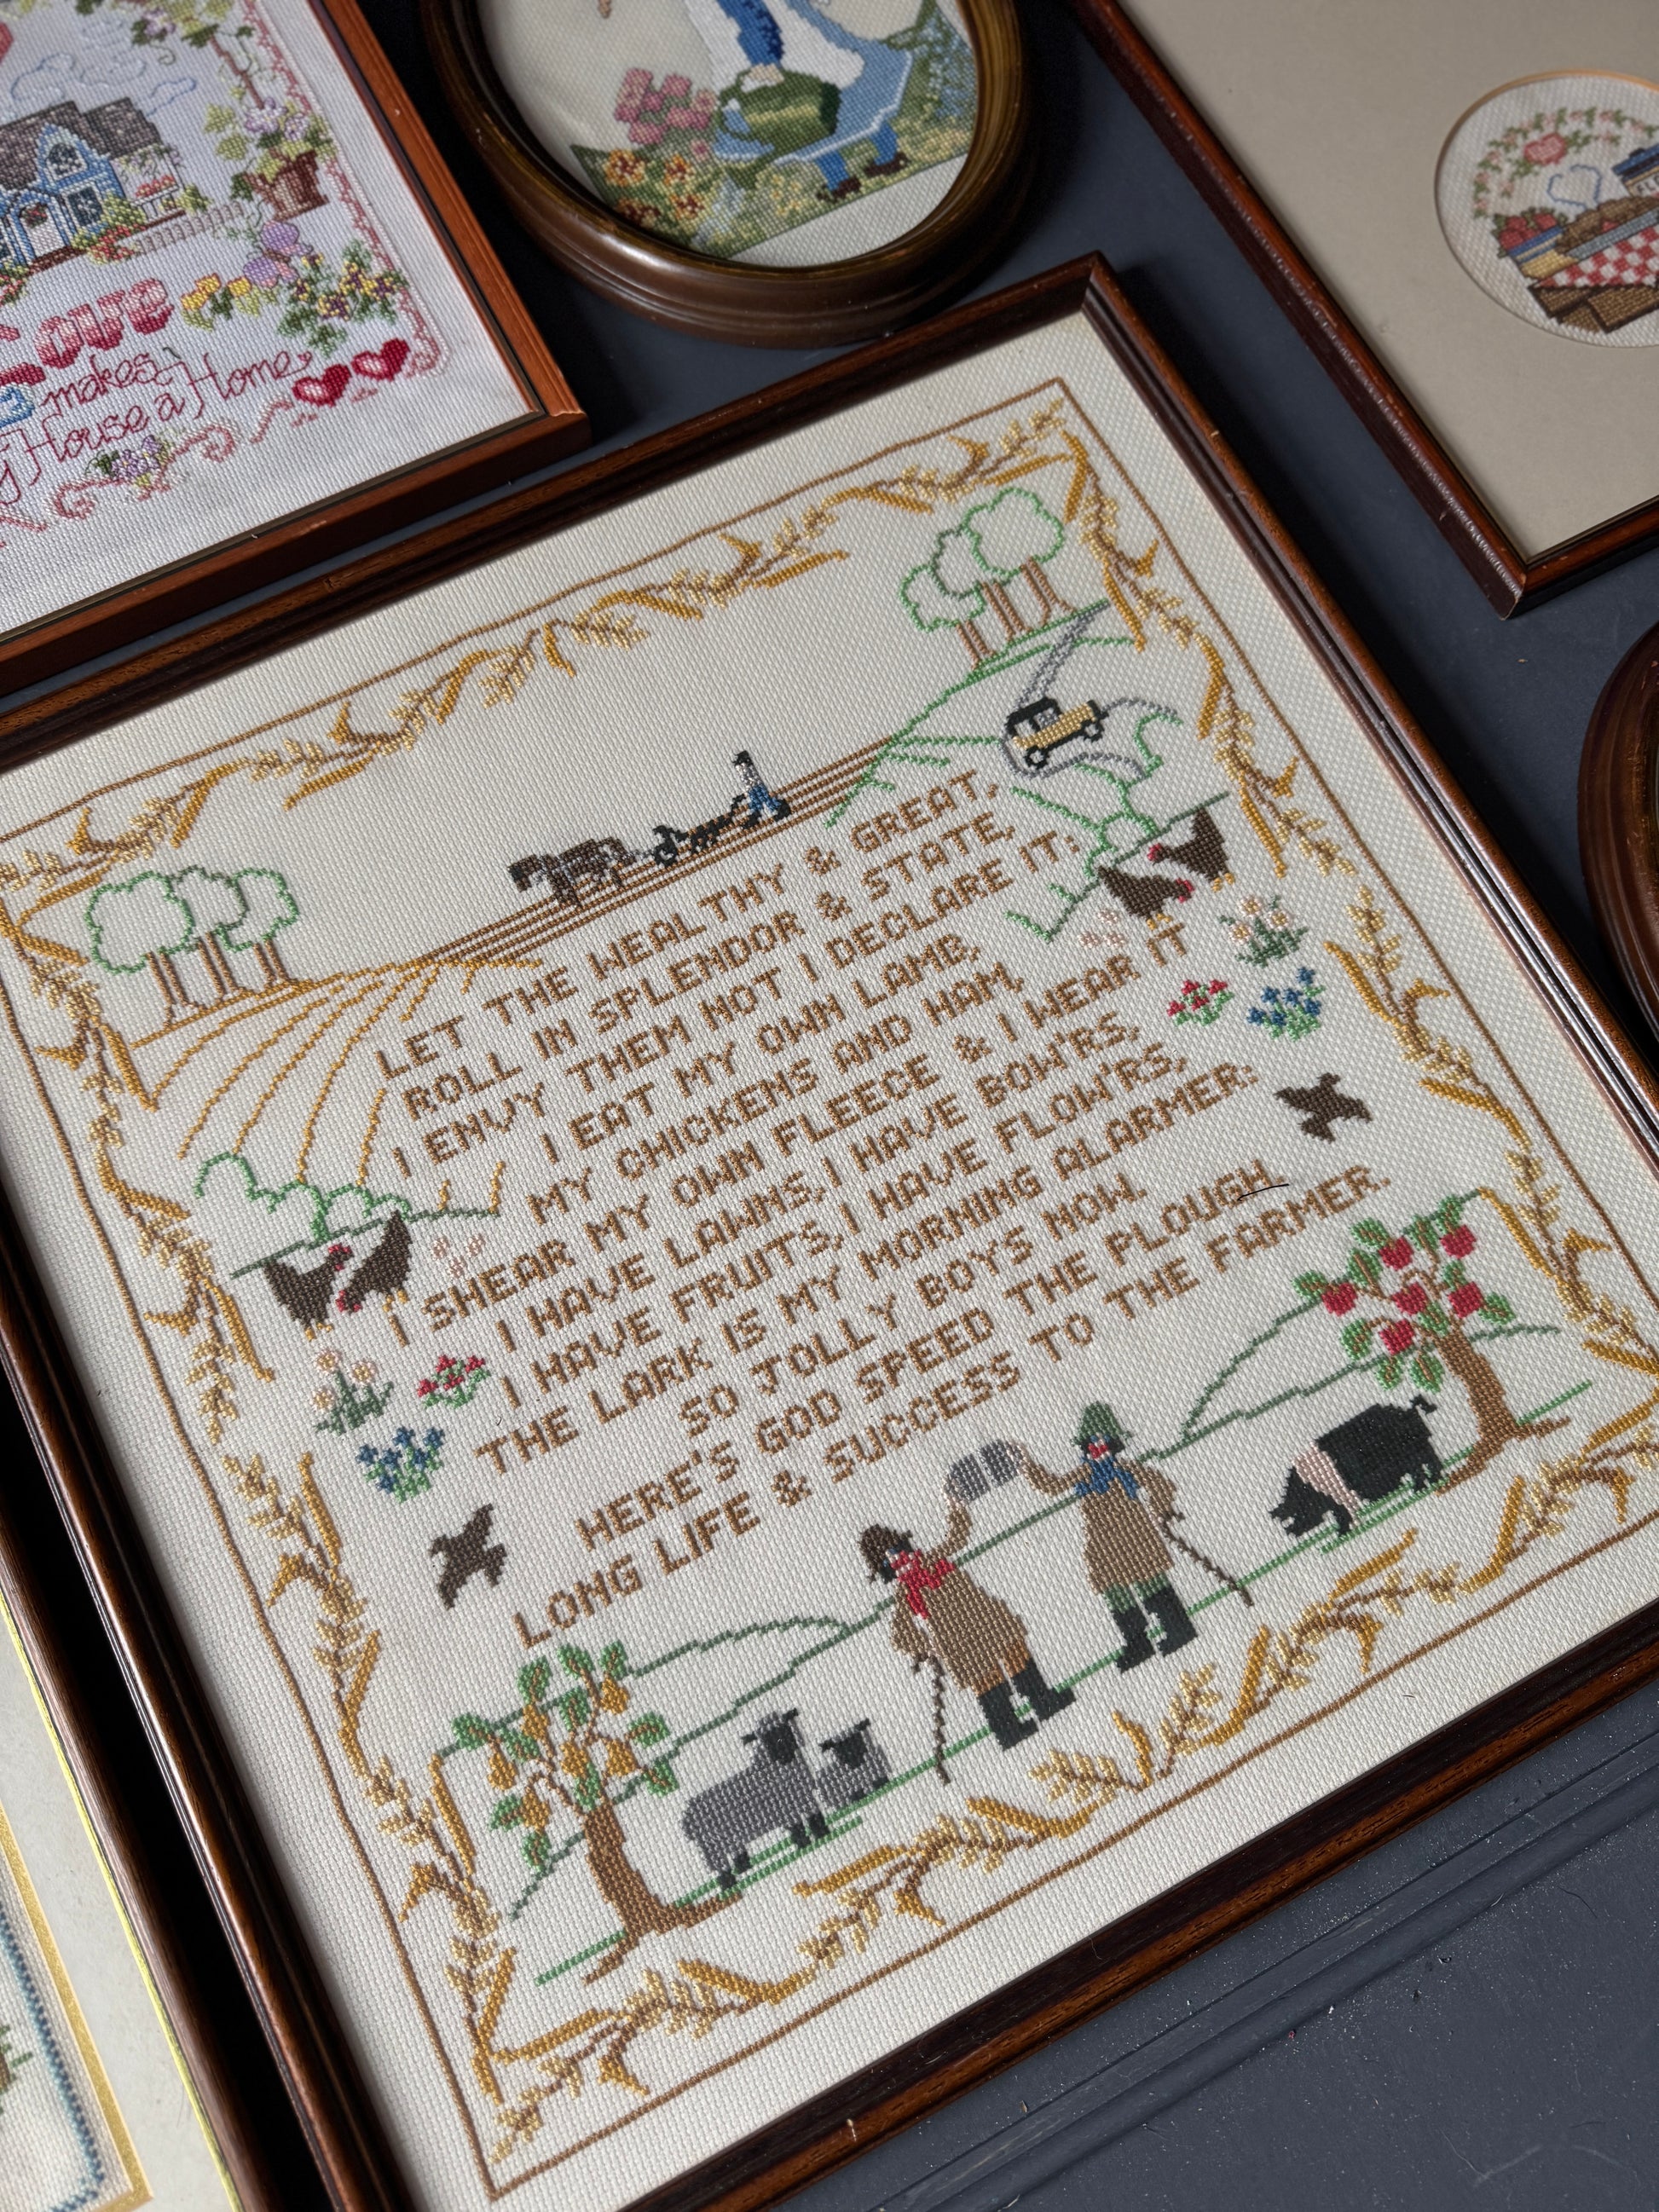 Love
makes
House a Home
LET THE WEALTHY & GREAT,
ROLL IN SPLENDOR & STATE,
I ENVY THEM NOT I DECLARE IT:
I EAT MY OWN LAMB,
MY CHICKENS AND HAM,
I SHEAR MY OWN FLEECE & I WEAR IT
I HAVE LAWNS, I HAVE BOW'RS,
I HAVE FRUITS, I HAVE FLOW'RS,
THE LARK IS MY MORNING ALARMER:
SO JOLLY BOYS NOW,
HERE'S GOD SPEED THE PLOUGH,
LONG LIFE & SUCCESS TO THE FARMER.